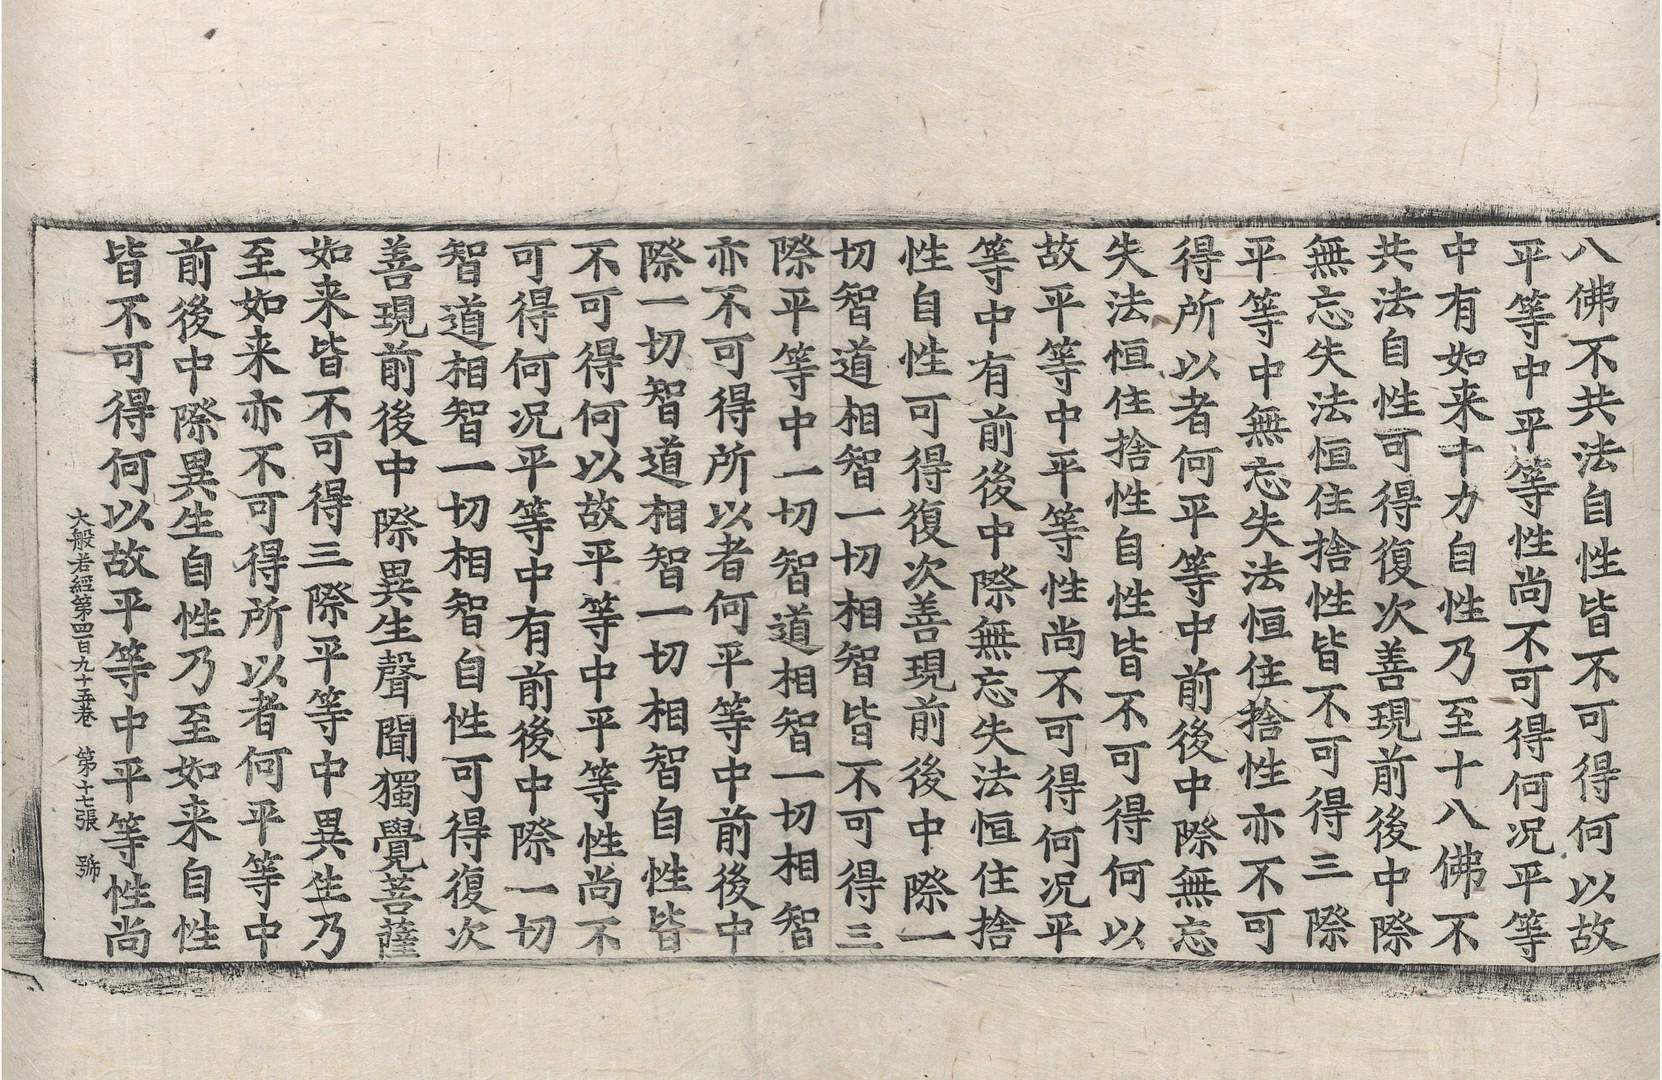 八佛不共法自性皆不可得何以故
平等中平等性尚不可得何况平等
中有如来十力自性乃至十八佛不
共法自性可得復次善現前後中際
無忘失法恒住捨性皆不可得三際
平等中無忘失法恒住捨性亦不可
得所以者何平等中前後中際無忘
失法恒住捨性自性皆不可得何以
故平等中平等性尚不可得何况平
等中有前後中際無忘失法恒住捨
性自性可得復次善現前後中際一
切智道相智一切相智皆不可得三
際平等中一切智道相智一切相智
亦不可得所以者何平等中前後中
際一切智道相智一切相智自性皆
不可得何以故平等中平等性尚不
可得何况平等中有前後中際一切
智道相智一切相智自性可得復次
善現前後中際異生聲聞獨覺菩薩
如来皆不可得三際平等中異生乃
至如来亦不可得所以者何平等中
前後中際異生自性乃至如来自性
皆不可得何以故平等中平等性尚
大般若經第四百九十五卷 第十七張 號